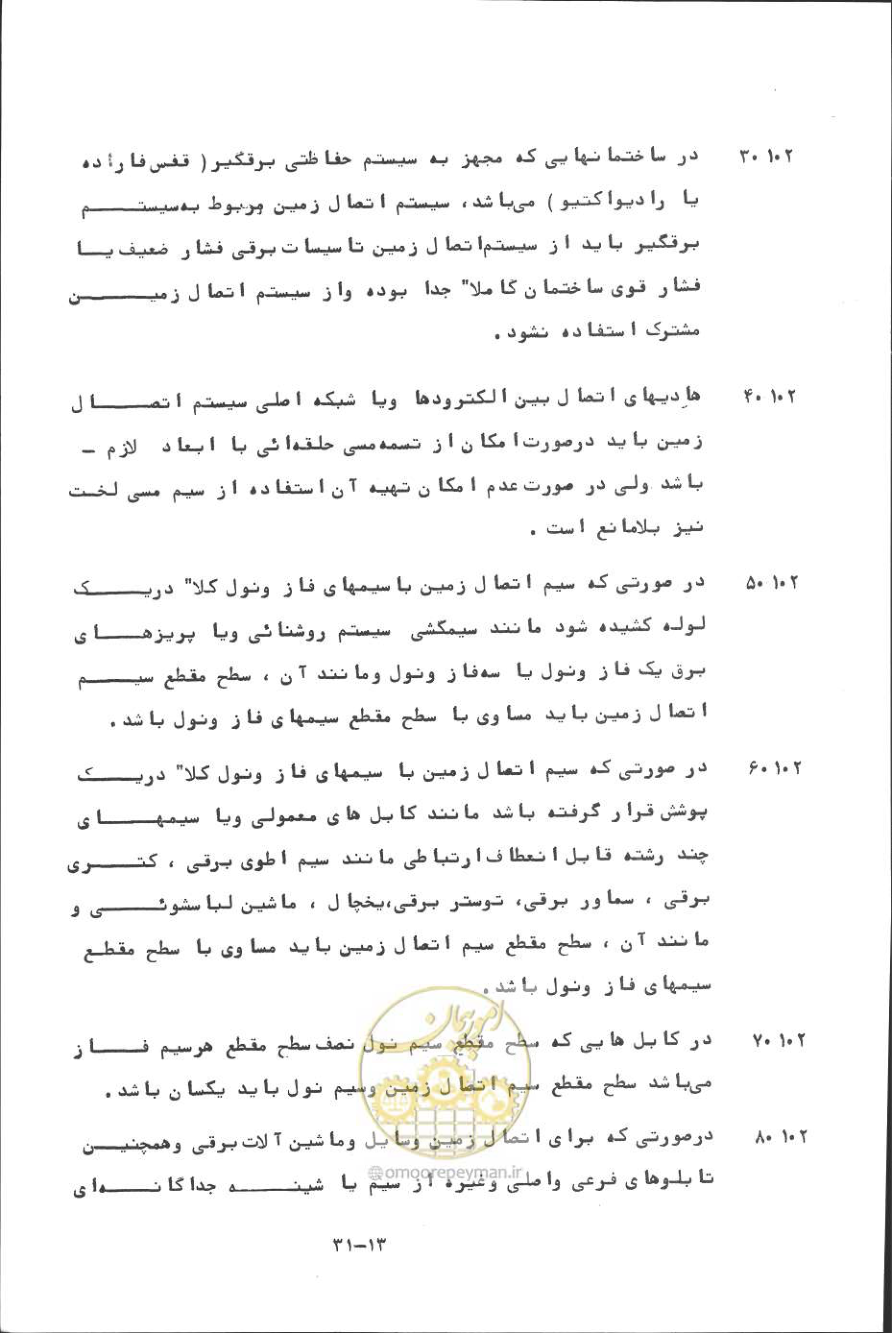 ۳۰ ۱۰۲ در ساختمانهایی که مجهز به سیستم حفاظتی برقگیر ( قفس فاراده
یا رادیواکتیو ) می‌باشد، سیستم اتصال زمین مربوط به‌سیستم
برقگیر باید از سیستم‌اتصال زمین تاسیسات برقی فشار ضعیف یا
فشار قوی ساختمان کاملا" جدا بوده واز سیستم اتصال زمین
مشترک استفاده نشود .
۴۰ ۱۰۲ هادیهای اتصال بین الکترودها ویا شبکه اصلی سیستم اتصال
زمین باید درصورت‌امکان از تسمه‌مسی حلقه‌ائی با ابعاد لازم –
باشد ولی در صورت عدم امکان تهیه آن استفاده از سیم مسی لخت
نیز بلامانع است .
۵۰ ۱۰۲ در صورتی که سیم اتصال زمین باسیمهای فاز ونول کلا" دریک
لوله کشیده شود مانند سیمکشی سیستم روشنائی ویا پریزهای
برق یک فاز ونول یا سه‌فاز ونول ومانند آن ، سطح مقطع سیم
اتصال زمین باید مساوی با سطح مقطع سیمهای فاز ونول باشد .
۶۰ ۱۰۲ در صورتی که سیم اتصال زمین با سیمهای فاز ونول کلا" دریک
پوشش قرار گرفته باشد مانند کابل های معمولی ویا سیمهای
چند رشته قابل انعطاف ارتباطی مانند سیم اطوی برقی ، کتری
برقی ، سماور برقی، توستر برقی،یخچال ، ماشین لباسشوئی و
مانند آن ، سطح مقطع سیم اتصال زمین باید مساوی با سطح مقطع
سیمهای فاز ونول باشد .
۷۰ ۱۰۲ در کابل هایی که سطح مقطع سیم نول نصف سطح مقطع هرسیم فاز
می‌باشد سطح مقطع سیم اتصال زمین وسیم نول باید یکسان باشد .
۸۰ ۱۰۲ درصورتی که برای اتصال زمین وسایل وماشین آلات برقی وهمچنین
تابلوهای فرعی واصلی وغیره از سیم یا شینه جداگانه‌ای
امور پیمان
@omoorepeyman.ir
۳۱–۱۳